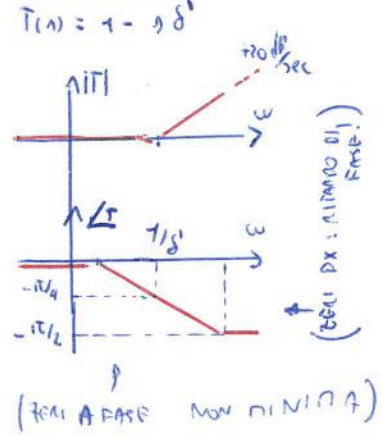 T(s) = 1 - s δ'
|T|
+20 dB/
SEC
ω
∠T
1/δ'
ω
-π/4
-π/2
(ZERI DX: RITARDO DI
FASE!)
(ZERI A FASE NON MINIMA)